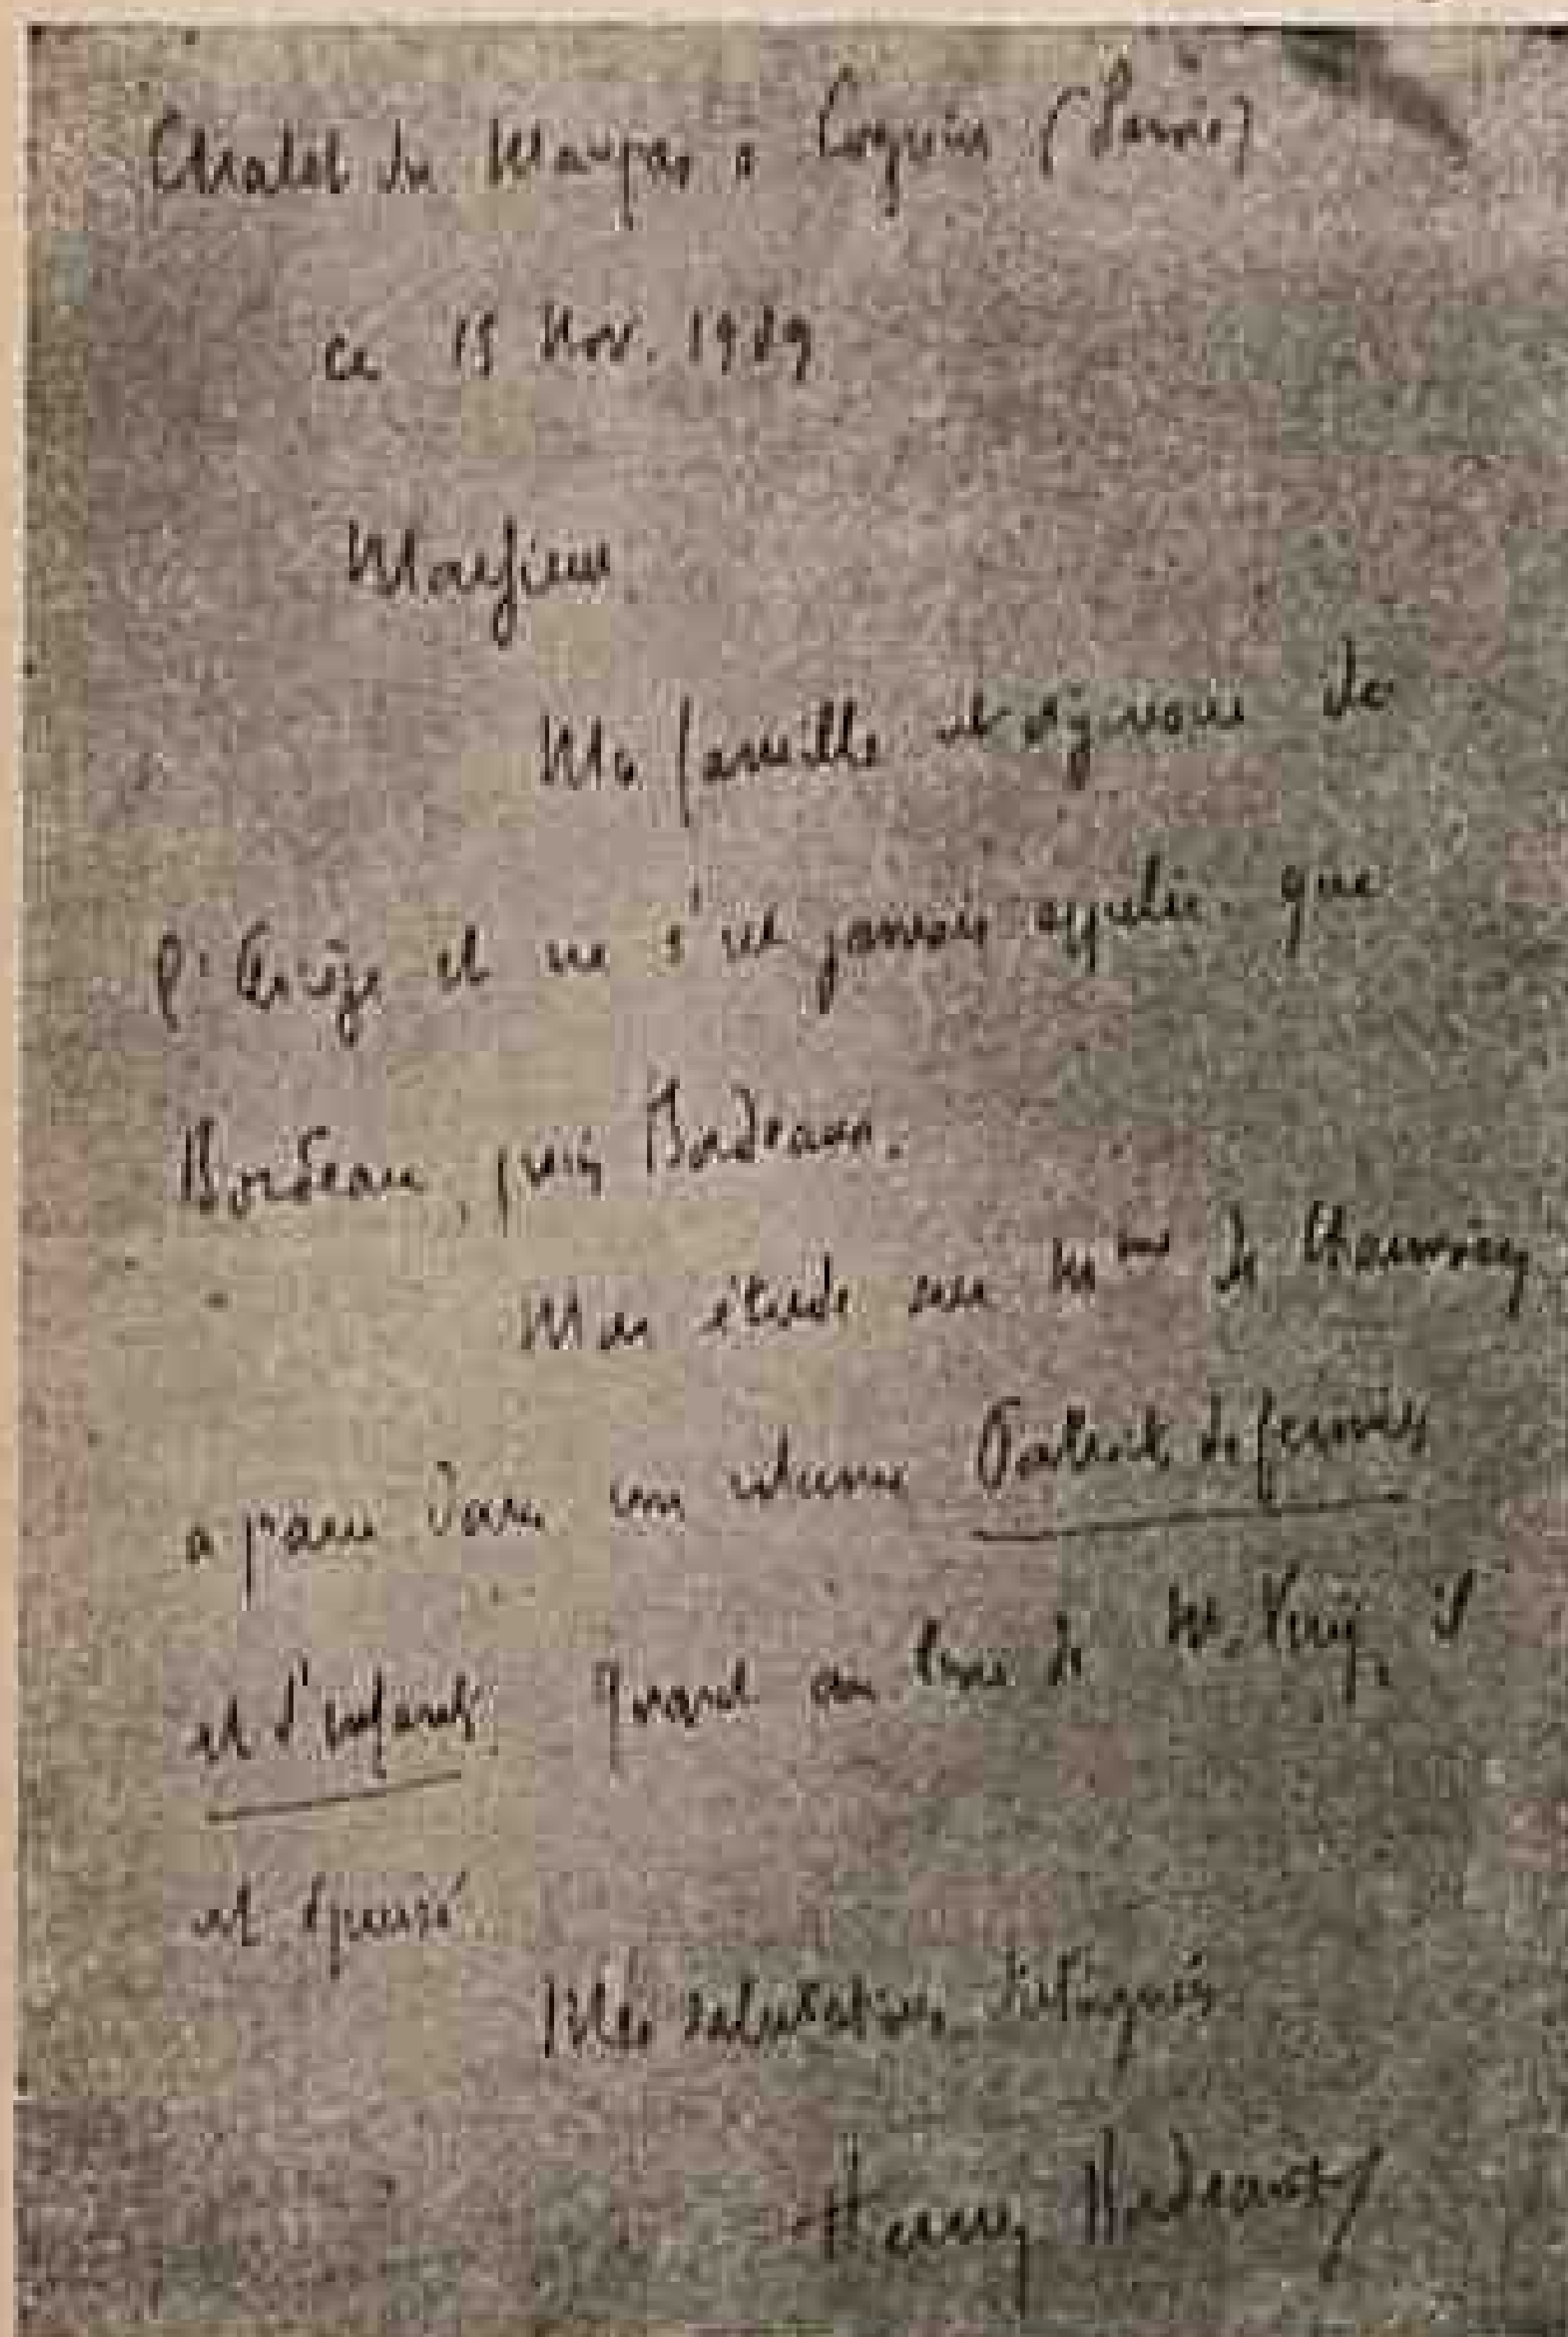 Chalet du Maupas à Cognin (Savoie)
ce 15 Nov. 1939
Monsieur
Ma famille est originaire de
l'Ariège et ne s'est jamais appelée que
Bordeau, puis Bordeaux.
Mon étude sur Mme de Charmoisy
a paru dans un volume Portraits de femmes
et d'enfants. Quant au livre de M. il
est épuisé
Mes salutations distinguées
Henry Bordeaux